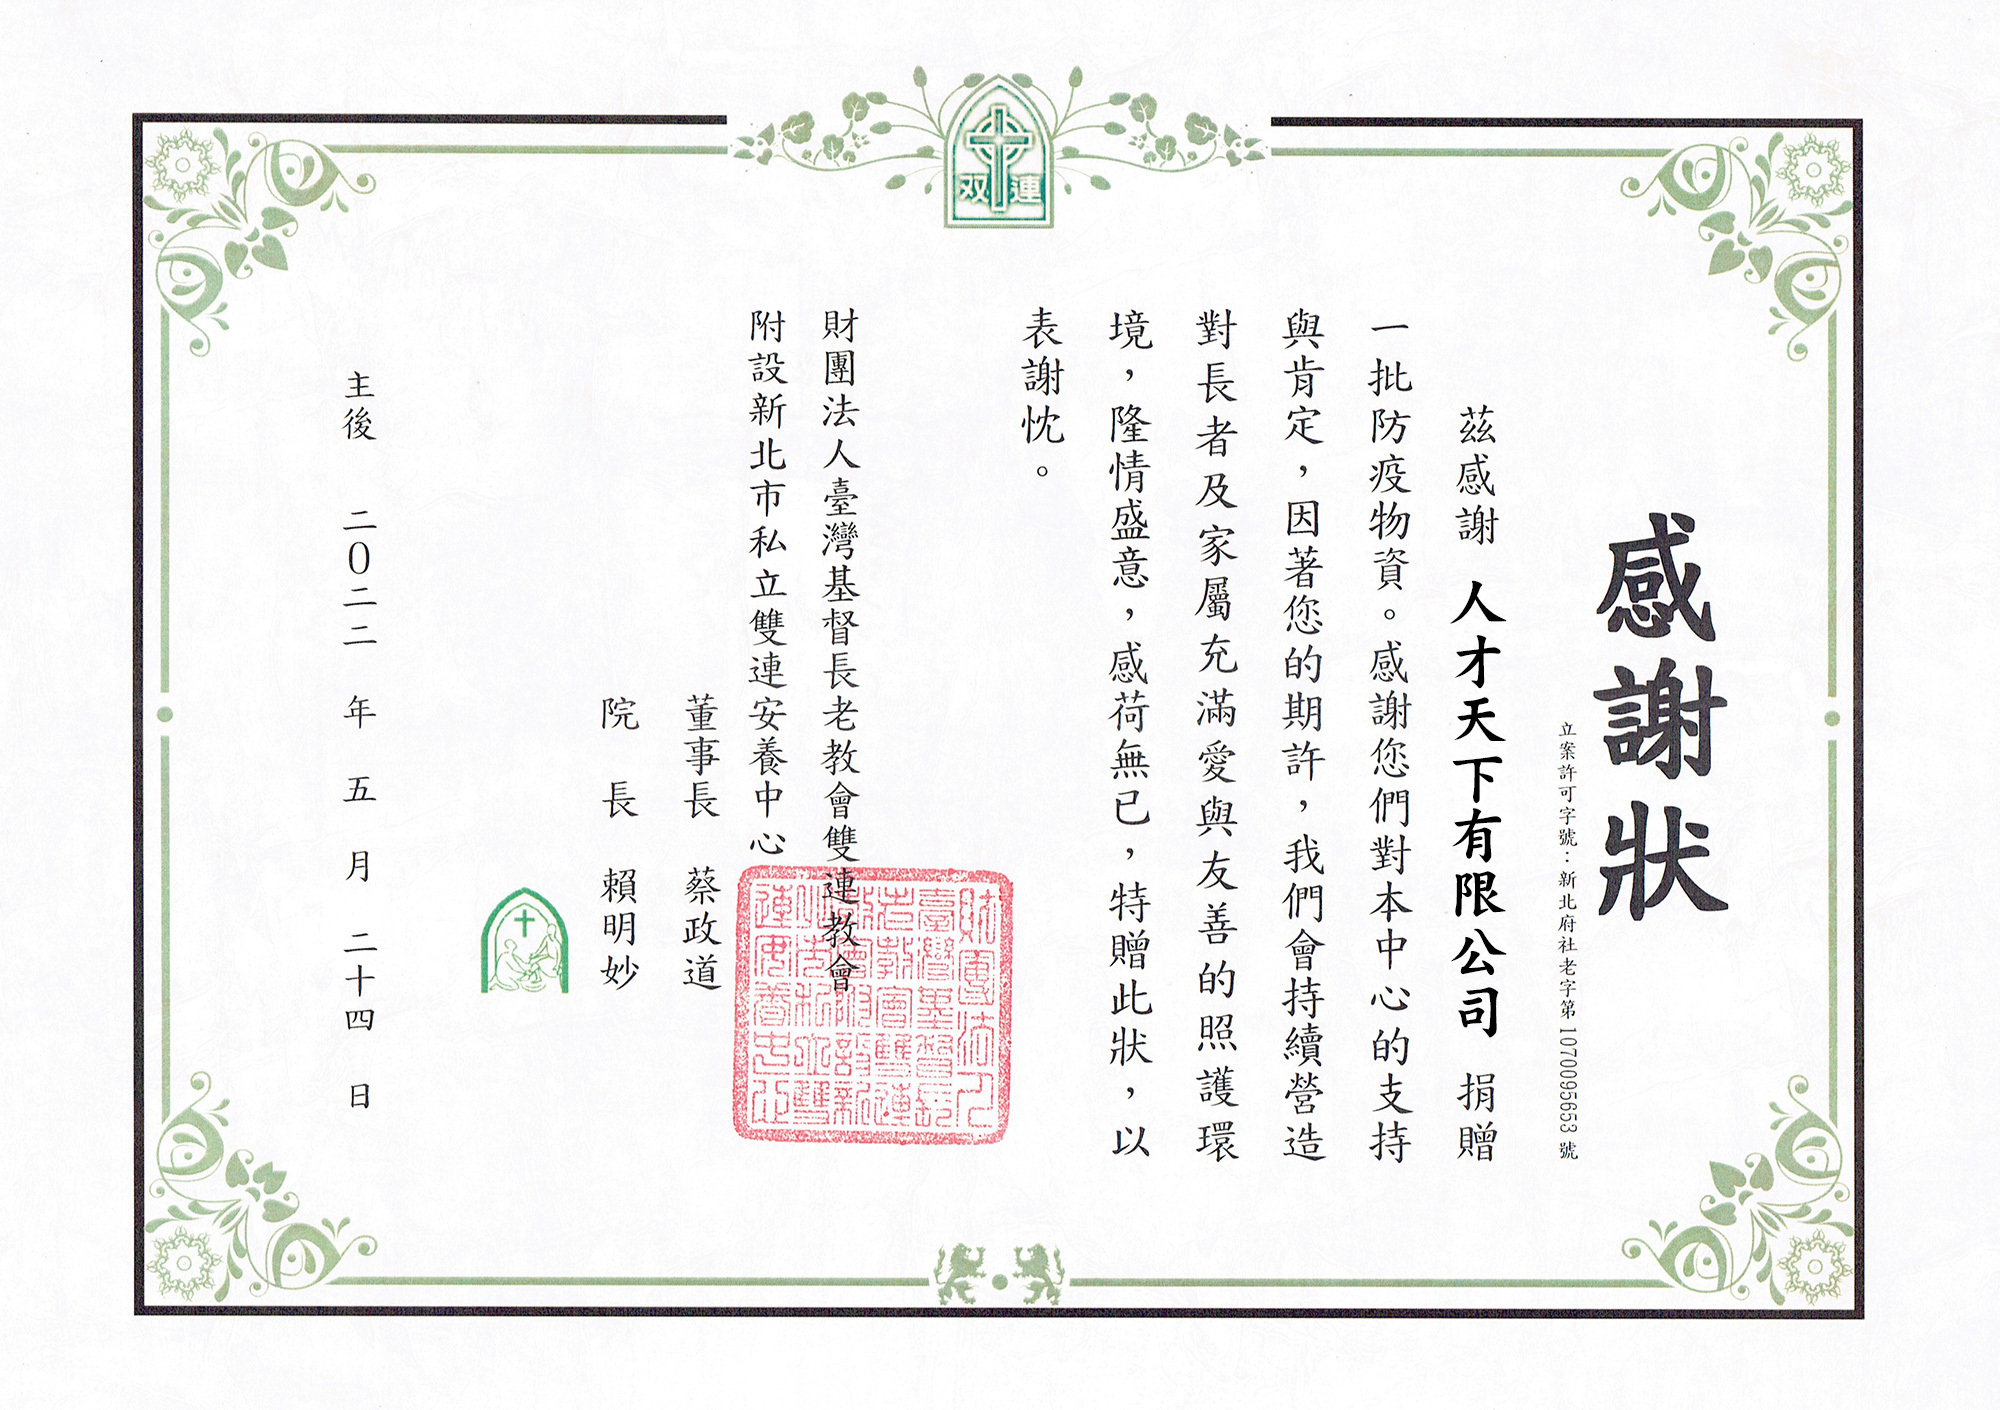 双連
感謝狀
立案許可字號：新北府社老字第1070095653號
茲感謝 人才天下有限公司 捐贈
一批防疫物資。感謝您們對本中心的支持
與肯定，因著您的期許，我們會持續營造
對長者及家屬充滿愛與友善的照護環
境，隆情盛意，感荷無已，特贈此狀，以
表謝忱。
財團法人臺灣基督長老教會雙連教會
附設新北市私立雙連安養中心
董事長 蔡政道
院長 賴明妙
財團法人
臺灣基督長
老教會雙連
教會附設新
北市私立雙
連安養中心
主後 二〇二二 年 五 月 二十四 日